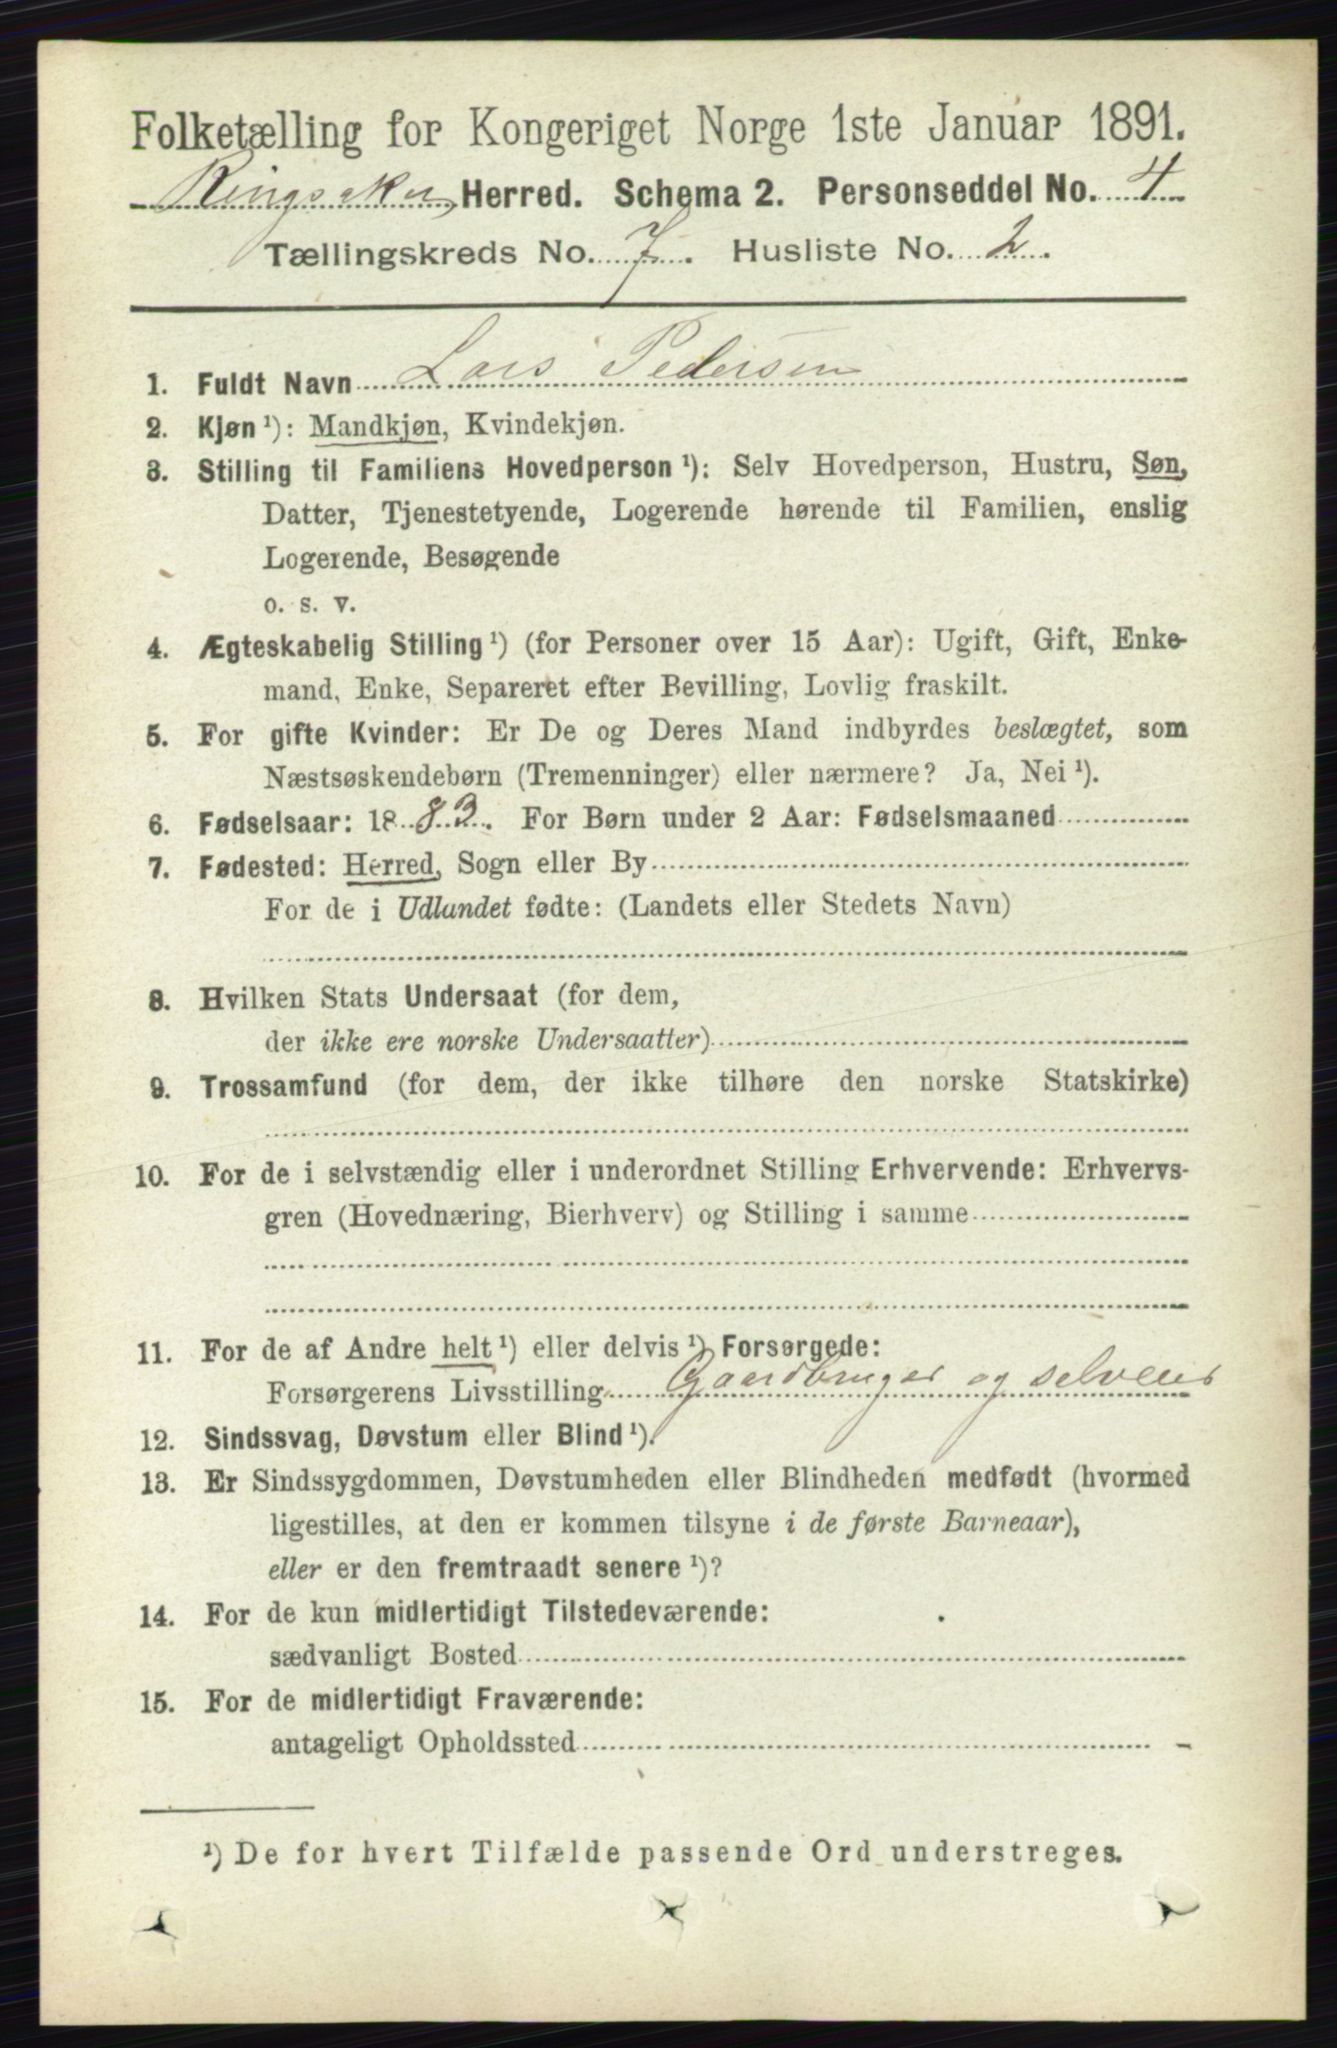 Folketælling for Kongeriget Norge 1ste Januar 1891.
Ringsaker Herred. Schema 2. Personseddel No. 4
Tællingskreds No. 7. Husliste No. 2.
1. Fuldt Navn Lars Pedersen
2. Kjøn ¹): Mandkjøn, Kvindekjøn.
3. Stilling til Familiens Hovedperson ¹): Selv Hovedperson, Hustru, Søn,
Datter, Tjenestetyende, Logerende hørende til Familien, enslig
Logerende, Besøgende
o. s. v.
4. Ægteskabelig Stilling ¹) (for Personer over 15 Aar): Ugift, Gift, Enke-
mand, Enke, Separeret efter Bevilling, Lovlig fraskilt.
5. For gifte Kvinder: Er De og Deres Mand indbyrdes beslægtet, som
Næstsøskendebørn (Tremenninger) eller nærmere? Ja, Nei ¹).
6. Fødselsaar: 1883. For Børn under 2 Aar: Fødselsmaaned
7. Fødested: Herred, Sogn eller By
For de i Udlandet fødte: (Landets eller Stedets Navn)
8. Hvilken Stats Undersaat (for dem,
der ikke ere norske Undersaatter)
9. Trossamfund (for dem, der ikke tilhøre den norske Statskirke)
10. For de i selvstændig eller i underordnet Stilling Erhvervende: Erhvervs-
gren (Hovednæring, Bierhverv) og Stilling i samme
11. For de af Andre helt ¹) eller delvis ¹) Forsørgede:
Forsørgerens Livsstilling Gaardbruger og selveier
12. Sindssvag, Døvstum eller Blind ¹).
13. Er Sindssygdommen, Døvstumheden eller Blindheden medfødt (hvormed
ligestilles, at den er kommen tilsyne i de første Barneaar),
eller er den fremtraadt senere ¹)?
14. For de kun midlertidigt Tilstedeværende:
sædvanligt Bosted
15. For de midlertidigt Fraværende:
antageligt Opholdssted
¹) De for hvert Tilfælde passende Ord understreges.